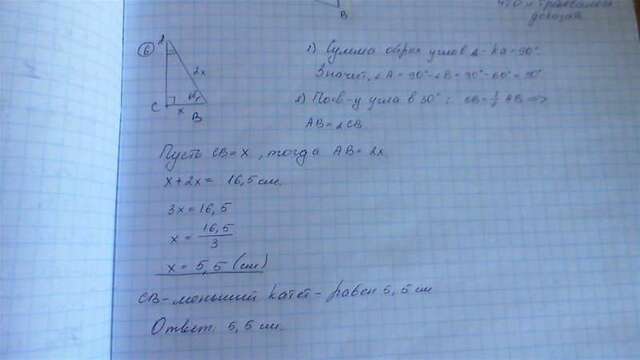 B
доказат
6
A
2x
60°
C
x
B
1) Сумма острых углов Δ-ка = 90°
Значит, ∠A = 90° - ∠B = 90° - 60° = 30°
2) По св-у угла в 30°: CB = 1/2 AB =>
AB = 2CB
Пусть CB = x, тогда AB = 2x
x + 2x = 16,5 см.
3x = 16,5
x = 16,5/3
x = 5,5 (см)
CB - меньший катет - равен 5,5 см
Ответ. 5,5 см.